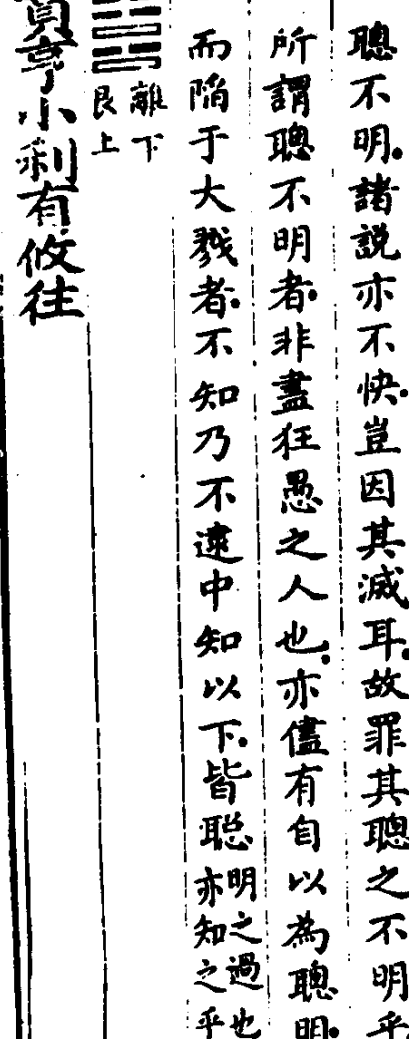 聰不明諸説亦不快豈因其滅耳故罪其聰之不明乎
所謂聰不明者非盡狂愚之人也亦儘有自以為聰明
而陥于大戮者不知乃不逮中知以下皆聡明之過也
亦知之乎
離下
艮上
賁亨小利有攸往